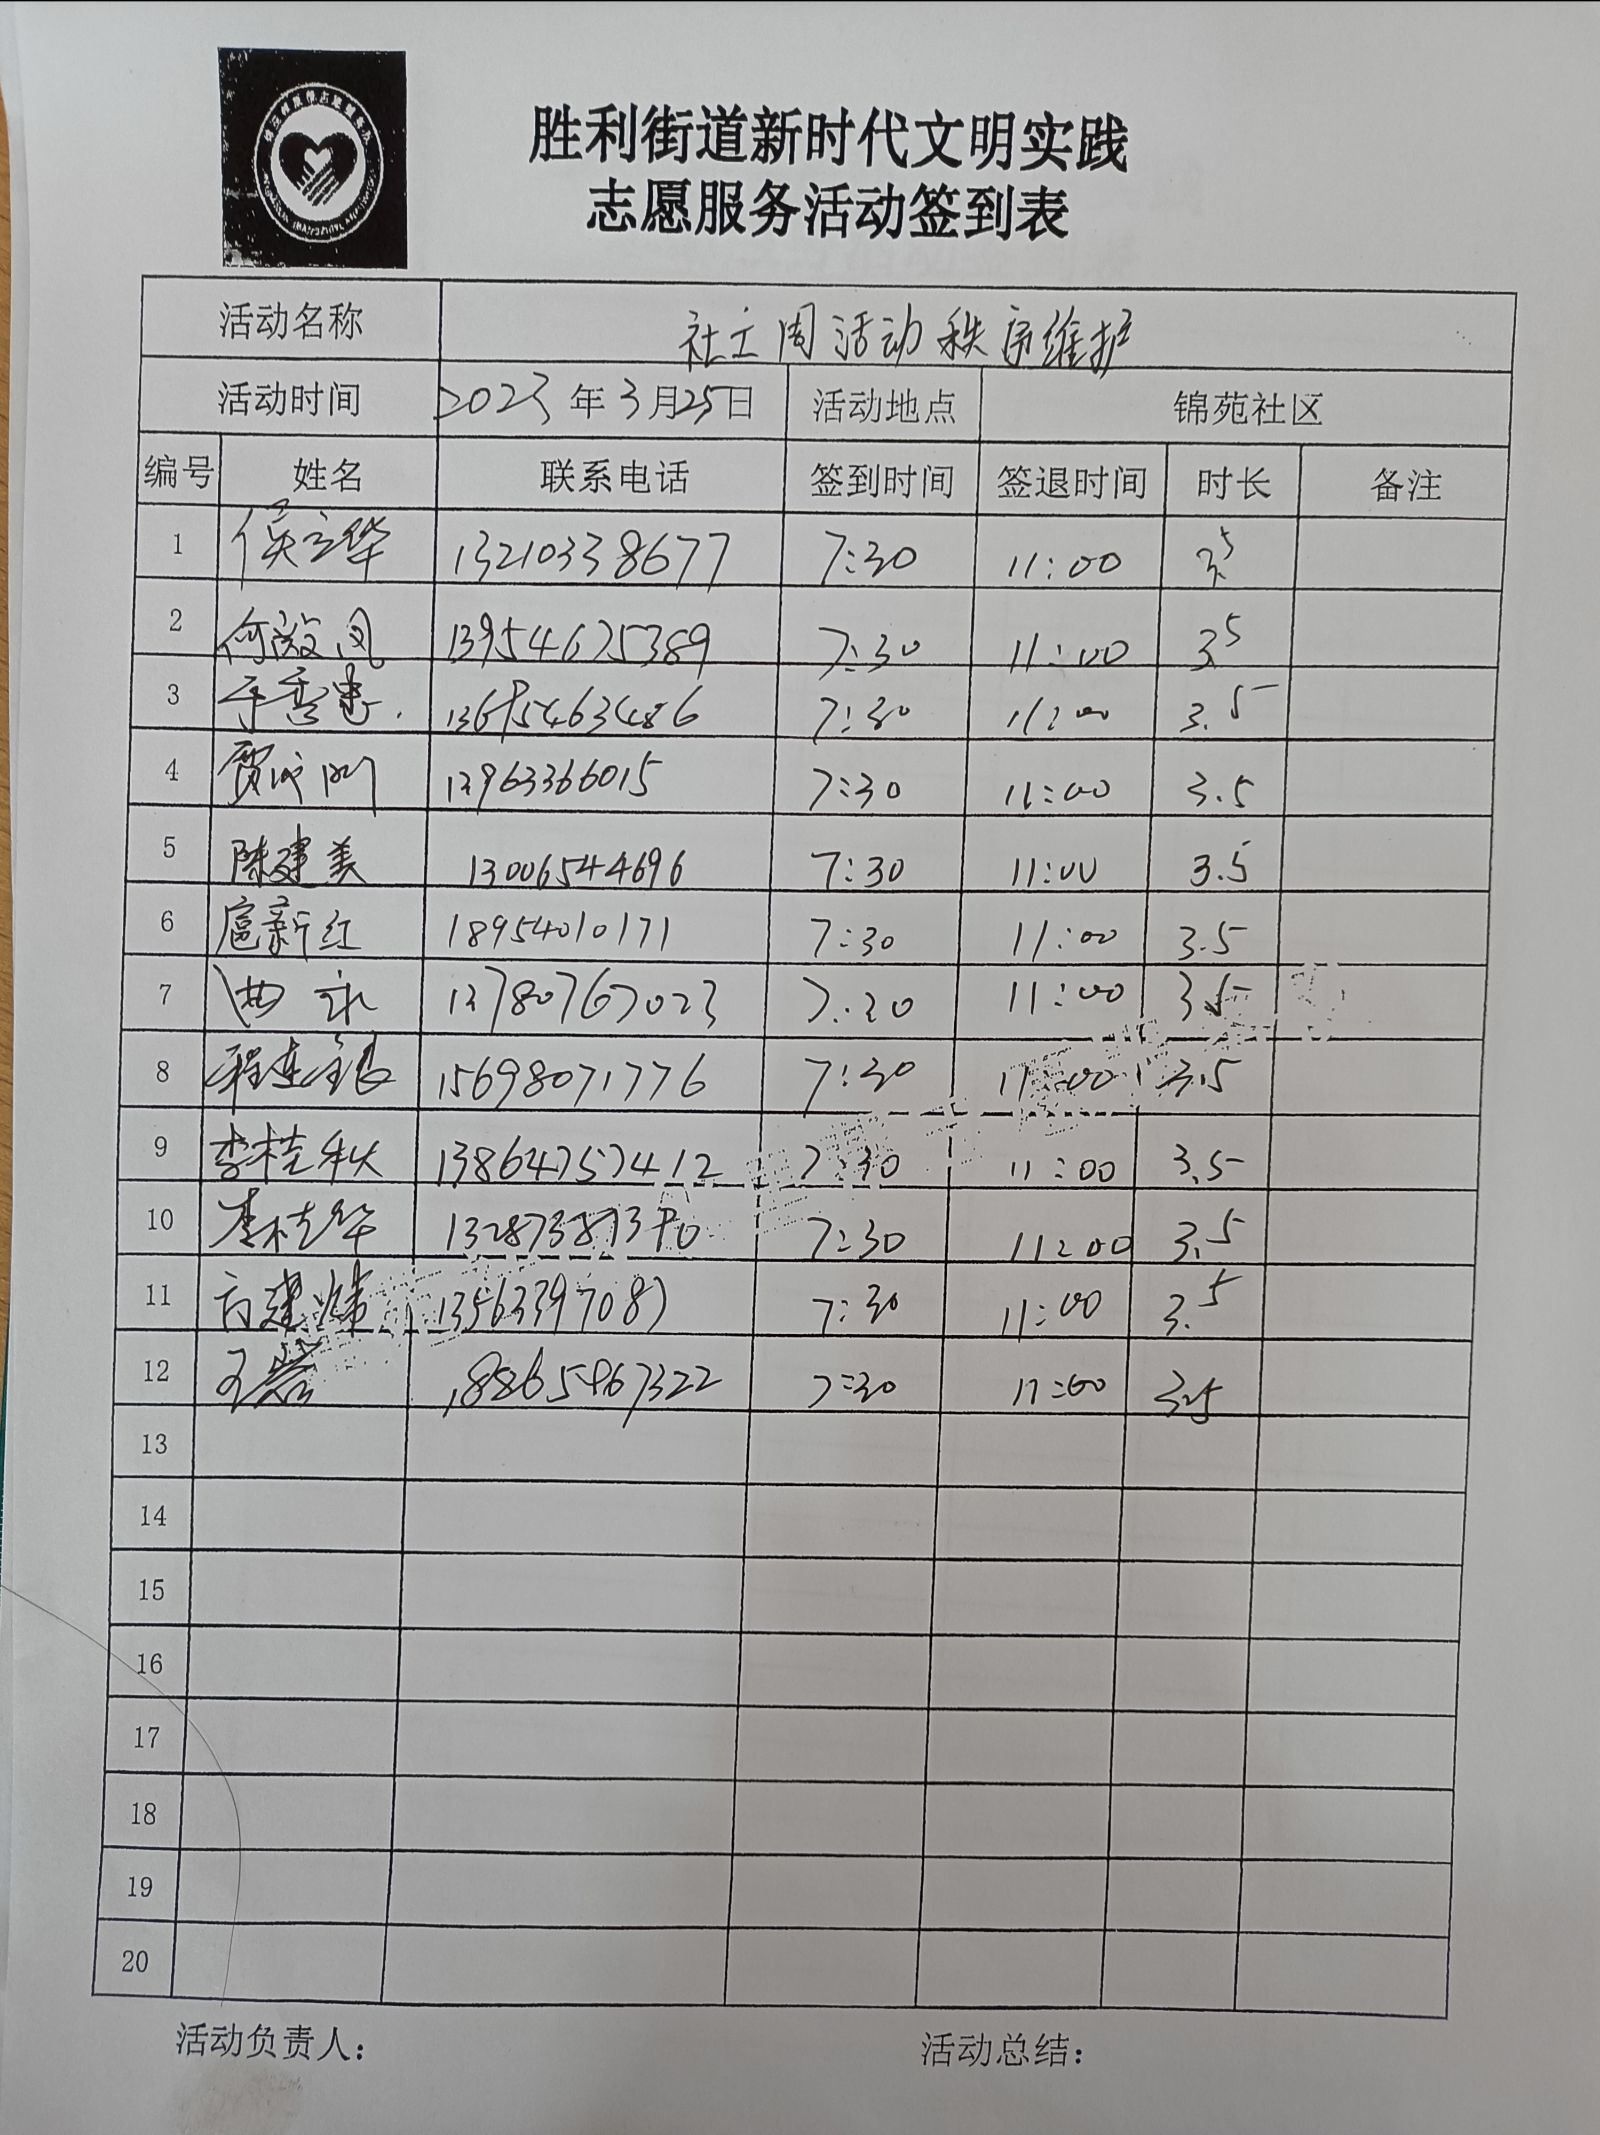 胜利街道新时代文明实践
志愿服务活动签到表
活动名称 社工周活动秩序维护
活动时间 2023年3月25日 活动地点 锦苑社区
编号 姓名 联系电话 签到时间 签退时间 时长 备注
1 侯立华 13210338677 7:30 11:00 3.5
2 何 凤 13954675389 7:30 11:00 3.5
3 7:30 11:00 3.5
4 贾 13963366015 7:30 11:00 3.5
5 陈建美 13006544696 7:30 11:00 3.5
6 扈新红 18954010171 7:30 11:00 3.5
7 13780767023 7:30 11:00 3.5
8 程连银 15698071776 7:30 11:00 3.5
9 李桂秋 13864757412 7:30 11:00 3.5
10 李桂华 7:30 11:00 3.5
11 7:30 11:00 3.5
12 18865867322 7:30 11:00 3.5
13
14
15
16
17
18
19
20
活动负责人: 活动总结: